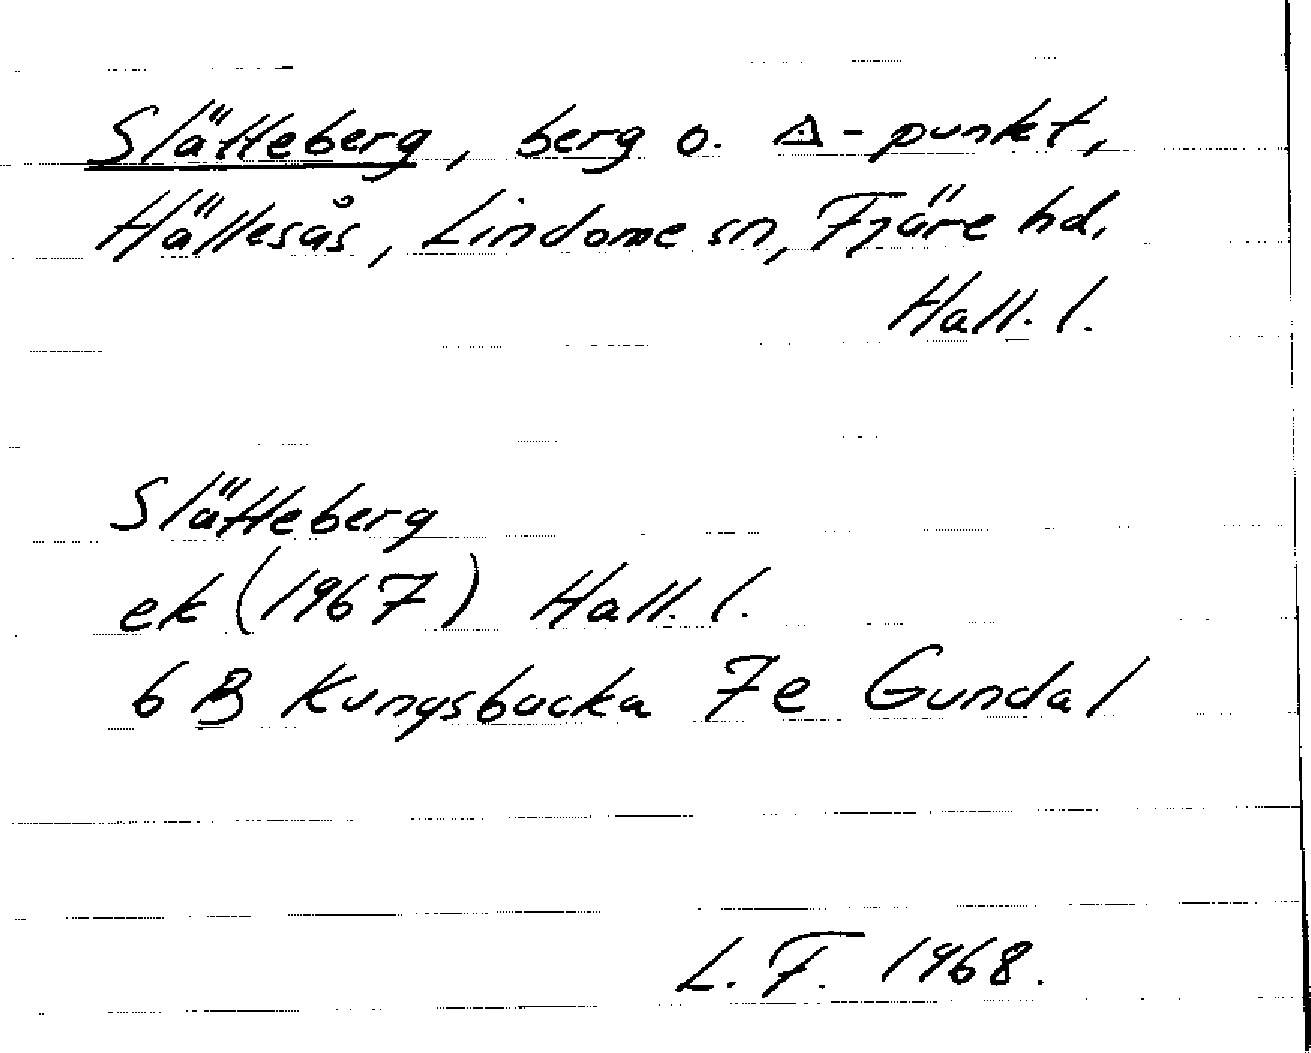 Slätteberg, berg o. △-punkt,
Hällesås, Lindome sn, Fjäre hd,
Hall. l.
Slätteberg
ek (1967) Hall. l.
6 B Kungsbacka 7e Gundal
L. F. 1968.